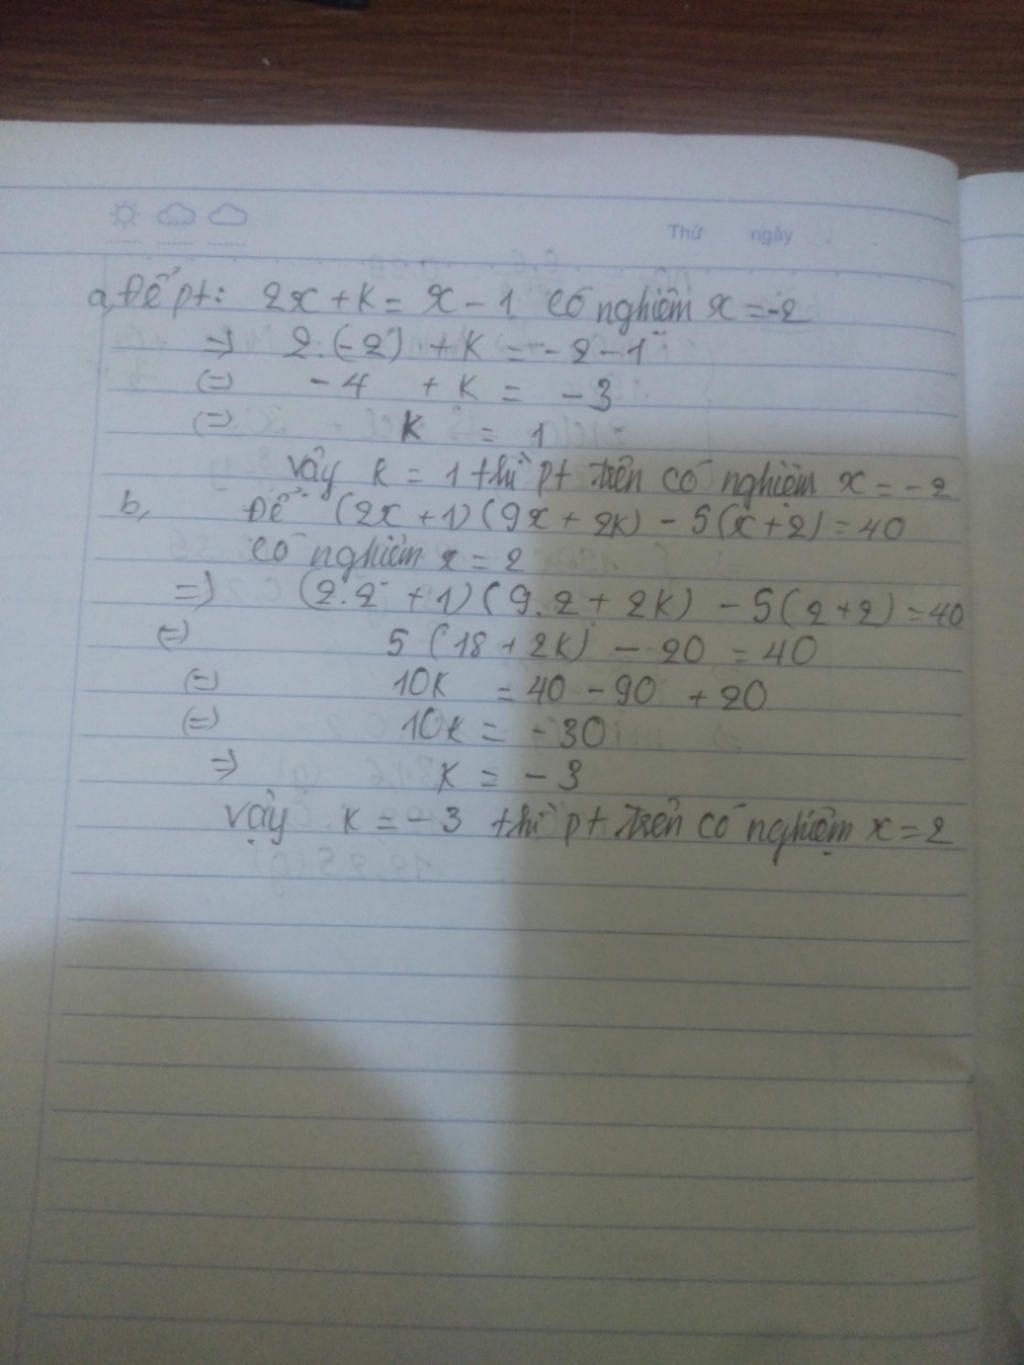 Thứ ngày
a, Để pt: 2x + k = x - 1 có nghiệm x = -2
=> 2.(-2) + k = -2 - 1
(=) -4 + k = -3
(=) k = 1
vậy k = 1 thì pt trên có nghiệm x = -2
b, Để (2x + 1)(9x + 2k) - 5(x + 2) = 40
có nghiệm x = 2
=) (2.2 + 1)(9.2 + 2k) - 5(2 + 2) = 40
(=) 5(18 + 2k) - 20 = 40
(=) 10k = 40 - 90 + 20
(=) 10k = -30
=> k = -3
vậy k = -3 thì pt trên có nghiệm x = 2